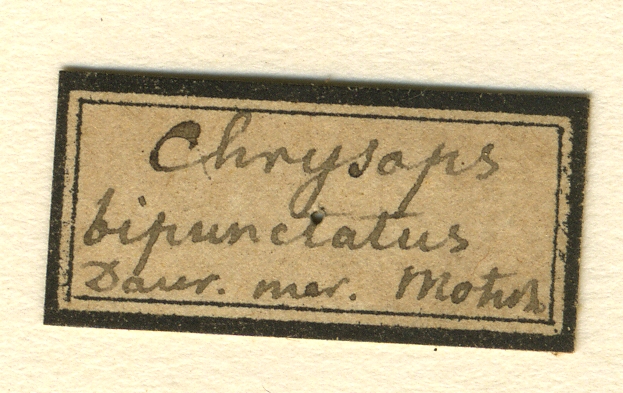 Chrysops
bipunctatus
Daur. mer. Motsch